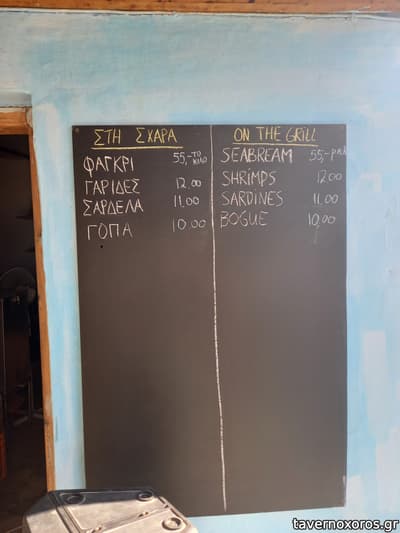 ΣΤΗ ΣΧΑΡΑ
ΦΑΓΚΡΙ 55,- ΤΟ ΚΙΛΟ
ΓΑΡΙΔΕΣ 12.00
ΣΑΡΔΕΛΑ 11.00
ΓΟΠΑ 10.00
ON THE GRILL
SEABREAM 55,-
SHRIMPS 12.00
SARDINES 11.00
BOGUE 10,00
tavernoxoros.gr